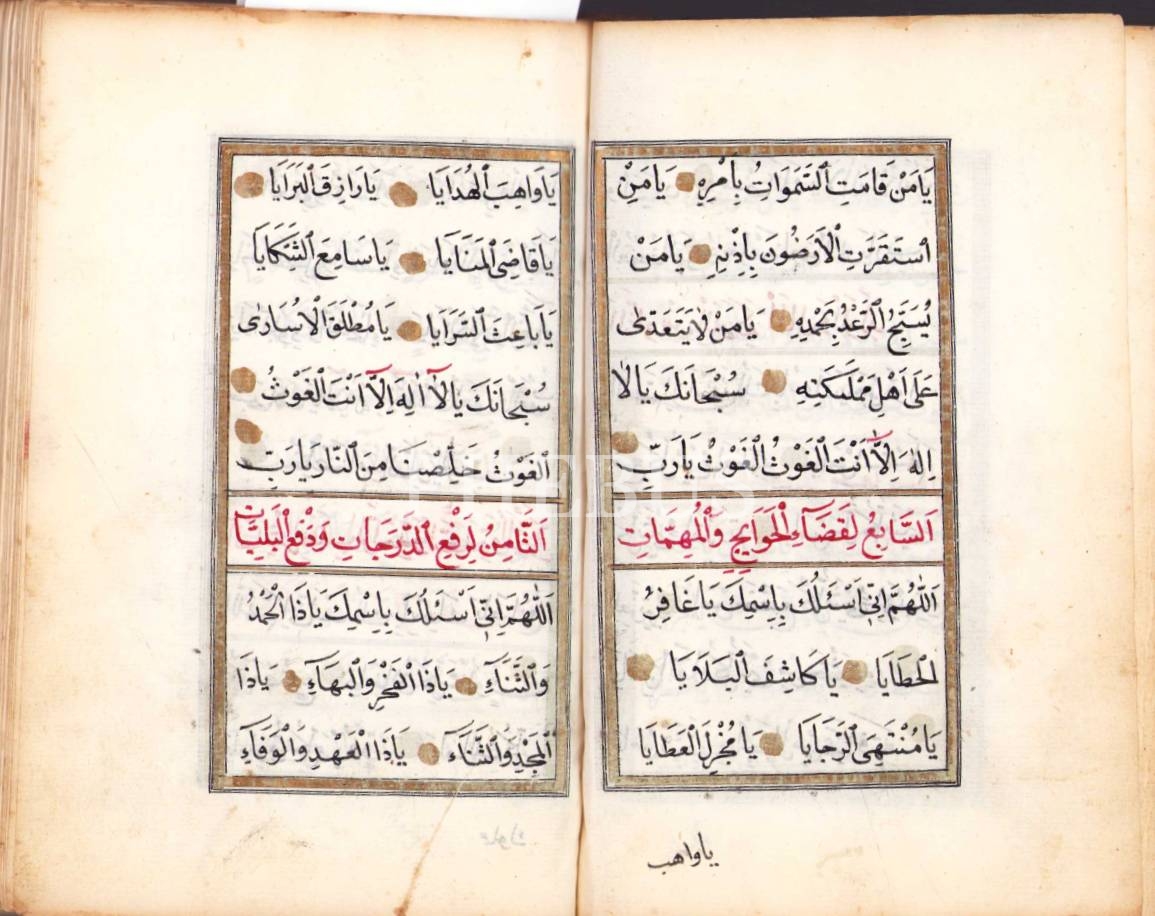 يَا مَنْ قَامَتِ السَّمَوَاتُ بِاَمْرِهِ يَا مَنِ
اسْتَقَرَّتِ الْاَرَضُونَ بِاِذْنِهِ يَا مَنْ
يُسَبِّحُ الرَّعْدُ بِحَمْدِهِ يَا مَنْ لَا يَتَعَدّٰى
عَلٰى اَهْلِ مَمْلَكَتِهِ سُبْحَانَكَ يَا لَا
اِلٰهَ اِلَّا اَنْتَ الْغَوْثُ الْغَوْثُ يَا رَبِّ
اَلسَّابِعُ لِقَضَاءِ الْحَوَايِجِ وَالْمُهِمَّاتِ
اَللّٰهُمَّ اِنِّى اَسْئَلُكَ بِاِسْمِكَ يَا غَافِرُ
الْخَطَايَا يَا كَاشِفَ الْبَلَايَا
يَا مُنْتَهَى الرَّجَايَا يَا مُجْزِلَ الْعَطَايَا
يا واهب
يَا وَاهِبَ الْهُدَايَا يَا رَازِقَ الْبَرَايَا
يَا قَاضِىَ الْمَنَايَا يَا سَامِعَ الشَّكَايَا
يَا بَاعِثَ السَّرَايَا يَا مُطْلَقَ الْاُسَارٰى
سُبْحَانَكَ يَا لَا اِلٰهَ اِلَّا اَنْتَ الْغَوْثُ
الْغَوْثُ خَلِّصْنَا مِنَ النَّارِ يَا رَبِّ
اَلثَّامِنُ لِرَفْعِ الدَّرَجَاتِ وَدَفْعِ الْبَلِيَّاتِ
اَللّٰهُمَّ اِنِّى اَسْئَلُكَ بِاِسْمِكَ يَا ذَا الْحَمْدُ
وَالثَّنَاءِ يَا ذَا الْفَخْرِ وَالْبَهَاءِ يَا ذَا
الْمَجْدِ وَالثَّنَاءِ يَا ذَا الْعَهْدِ وَالْوَفَاءِ
PHEBUS